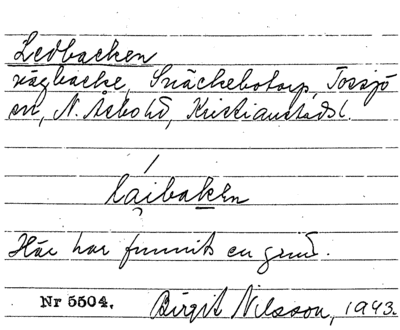 Ledbacken
vägbacke, Snäckebotorp, Tossjö
sn, N. Åsbo hd, Kristianstads l.
lai̯bakən
Här har funnits en grind.
Nr 5504. Birgit Nilsson, 1943.